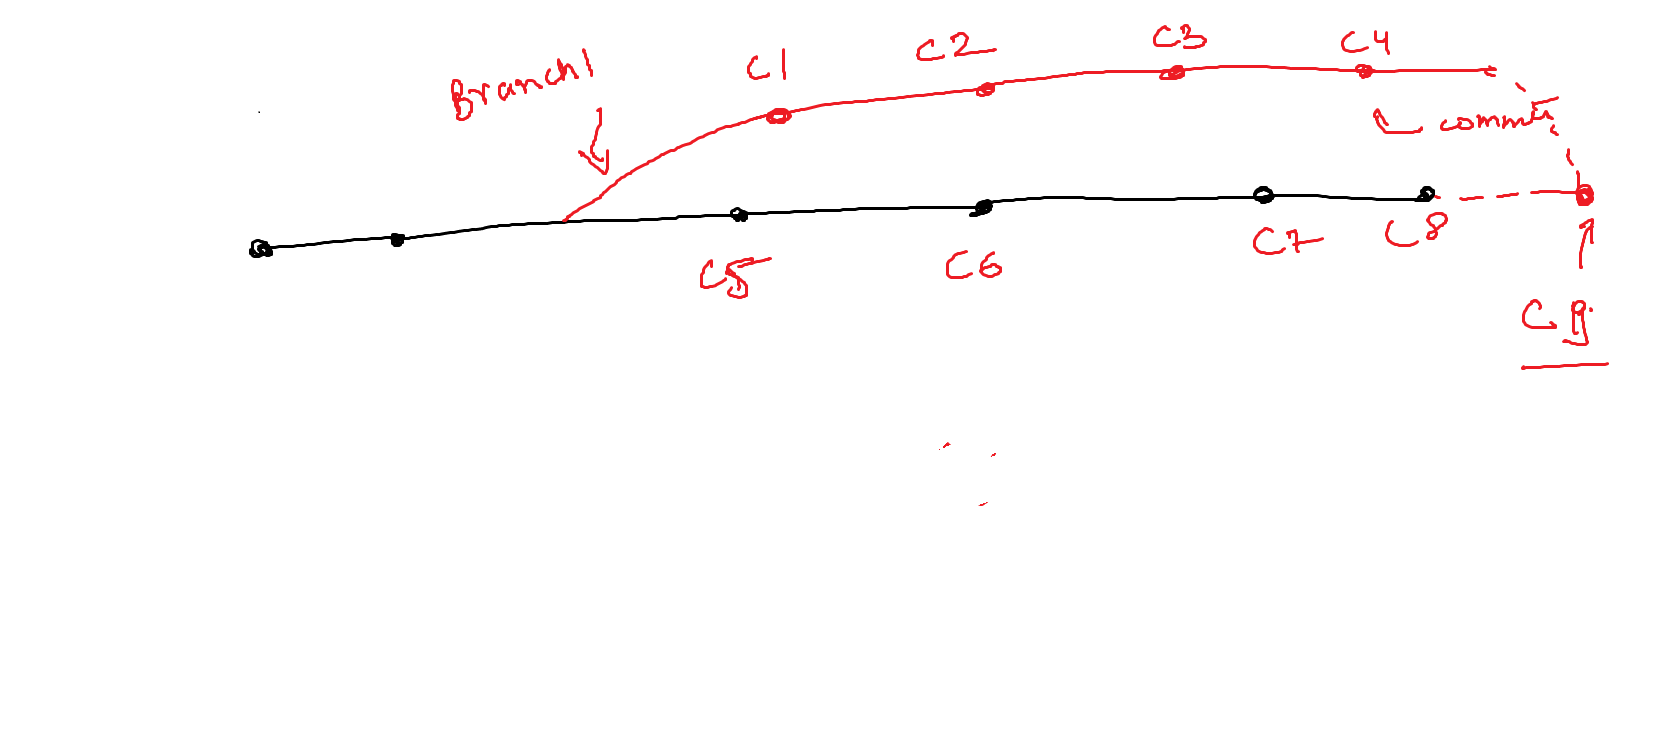 Branch1
C1
C2
C3
C4
commit
C5
C6
C7
C8
C9